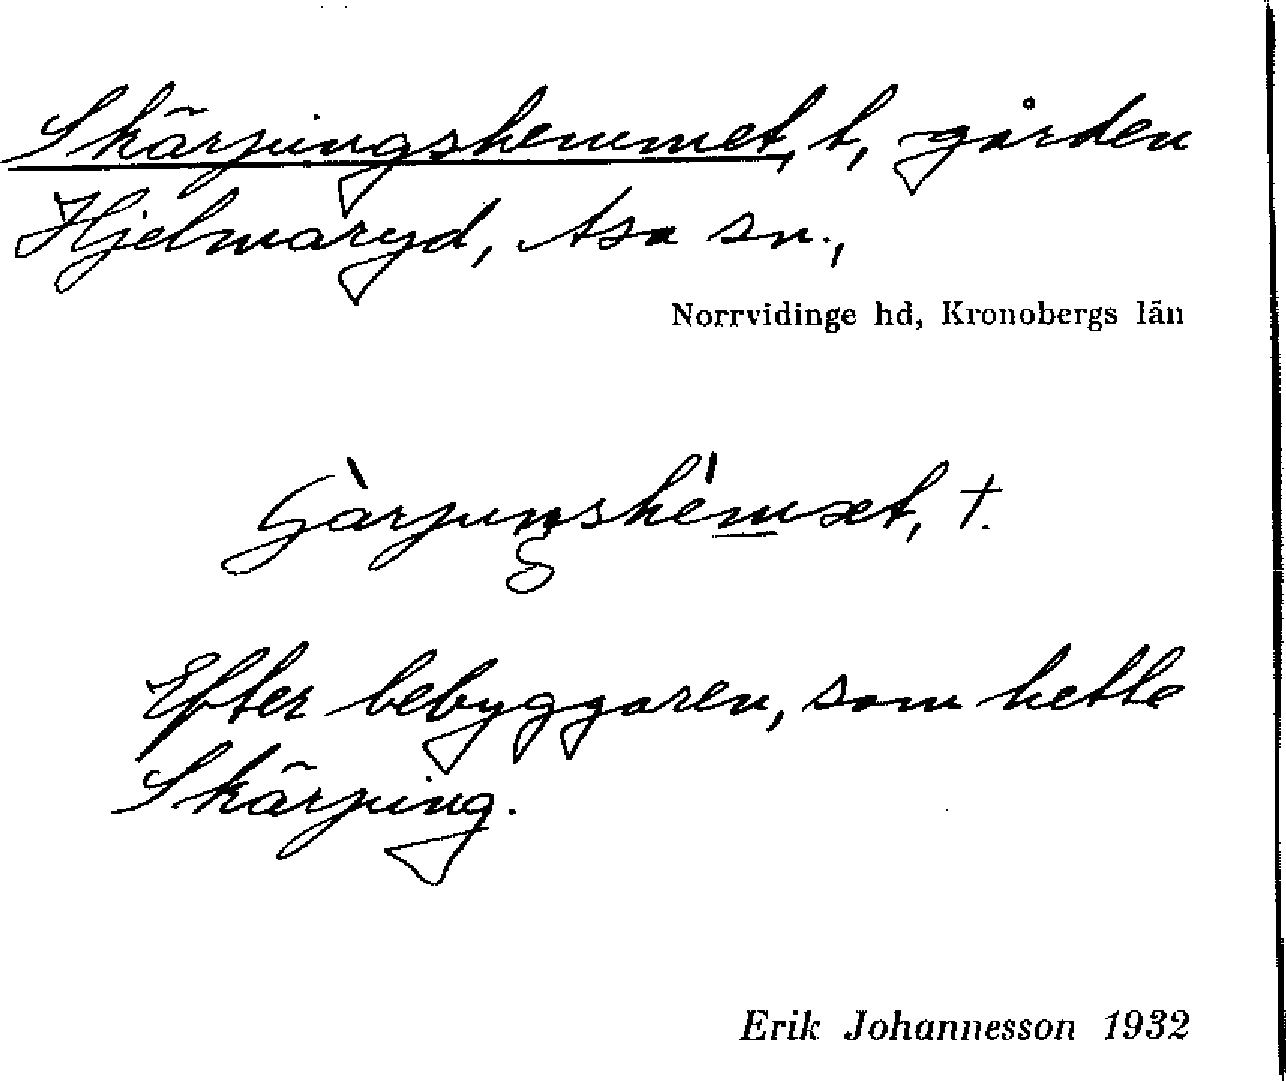 Skärpingshemmet, t, gården
Hjelmaryd, Asa sn.,
Norrvidinge hd, Kronobergs län
t.
Efter bebyggaren, som hette
Skärping.
Erik Johannesson 1932